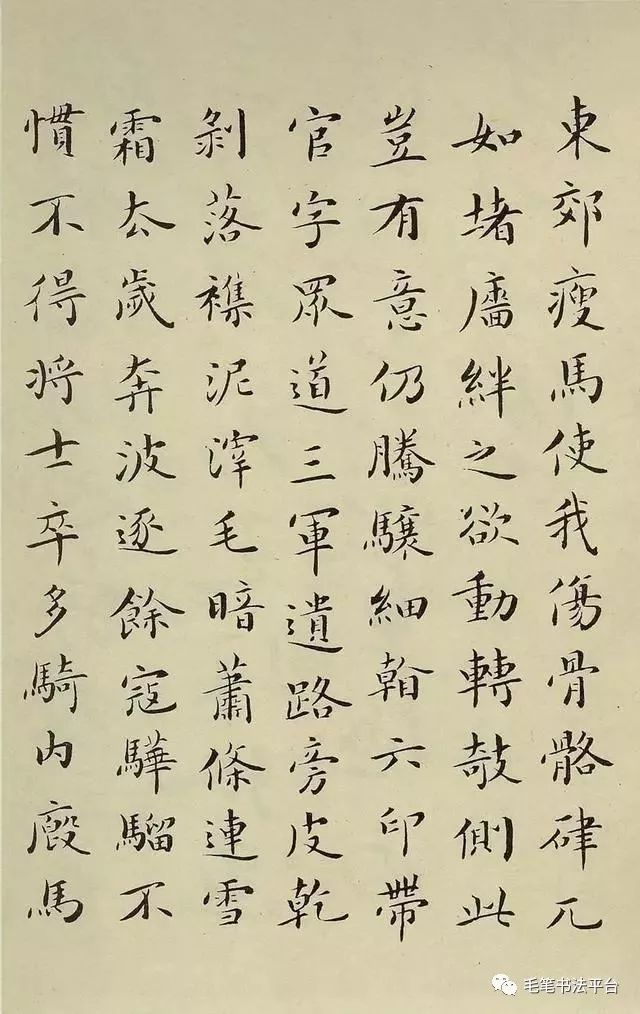 東郊瘦馬使我傷骨骼硉兀
如堵廧絆之欲動轉攲側此
豈有意仍騰驤細看六印帶
官字眾道三軍遺路旁皮乾
剝落襍泥滓毛暗蕭條連雪
霜去歲奔波逐餘寇驊騮不
慣不得將士卒多騎内廄馬
毛笔书法平台